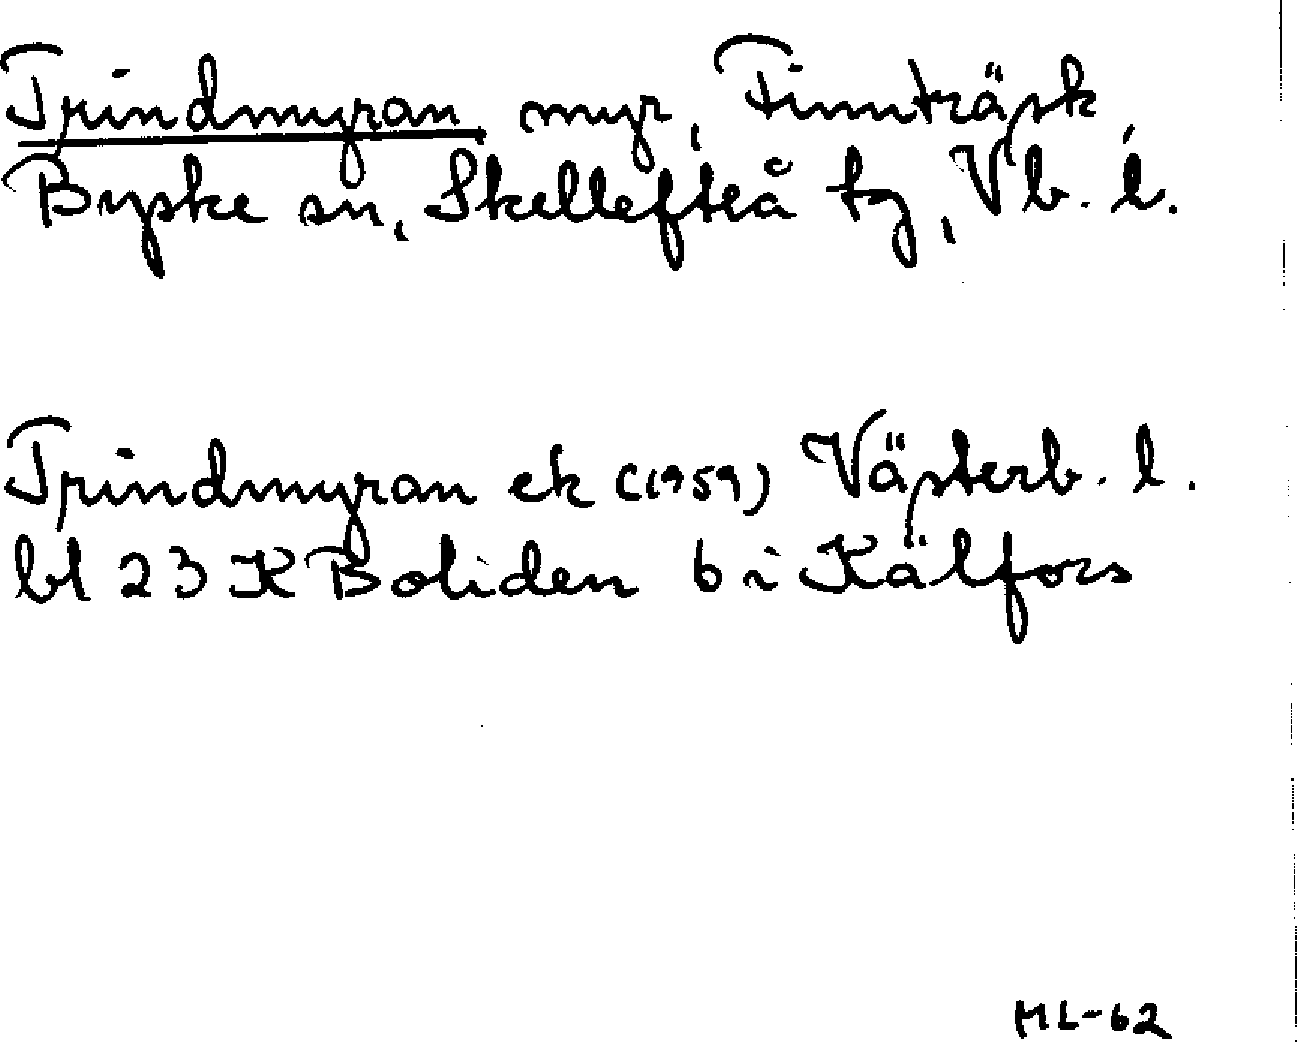 Trindmyran myr, Finnträsk,
Byske sn, Skellefteå tg, Vb. l.
Trindmyran ek (1959) Västerb. l.
bl 23 K Boliden 6 i Kälfors
ML-62